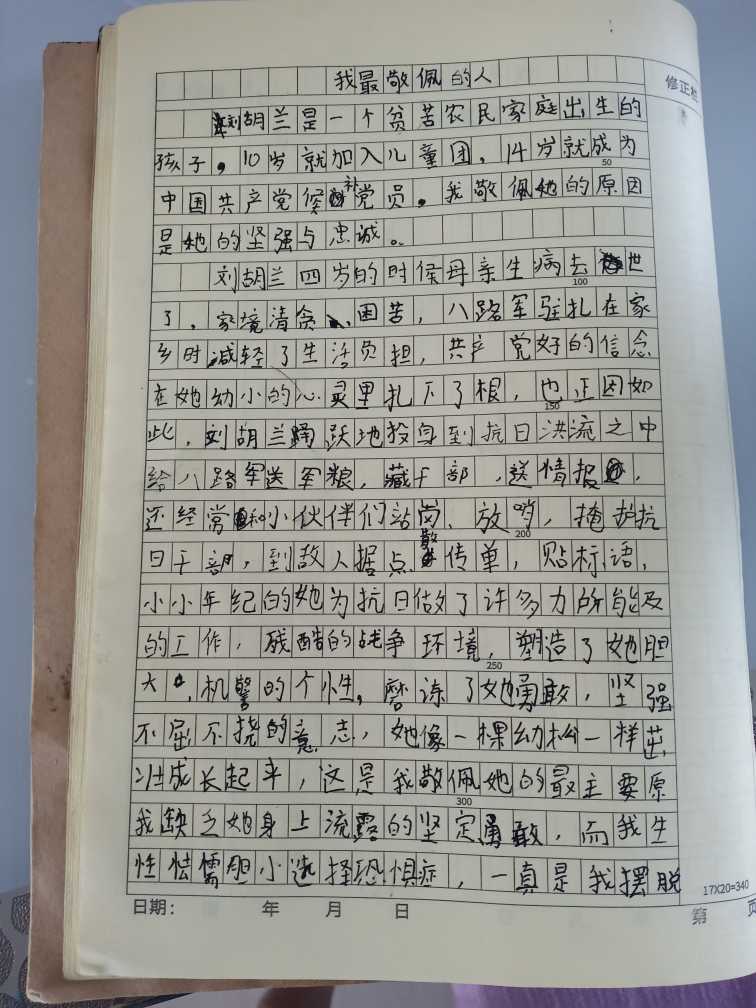 我最敬佩的人
修正栏
刘胡兰是一个贫苦农民家庭出生的
孩子，10岁就加入儿童团，14岁就成为
50
中国共产党候补党员。我敬佩她的原因
是她的坚强与忠诚。
刘胡兰四岁的时侯母亲生病去世
100
了，家境清贪、困苦，八路军驻扎在家
乡时减轻了生活负担，共产党好的信念
在她幼小的心灵里扎下了根，也正因如
150
此，刘胡兰踊跃地投身到抗日洪流之中
给八路军送军粮，藏干部，送情报，
还经常和小伙伴们站岗、放哨，掩护抗
200
日干部，到敌人据点散传单，贴标语，
小小年纪的她为抗日做了许多力所能及
的工作，残酷的战争环境，塑造了她胆
250
大，机警的个性，磨练了她勇敢，坚强
不屈不挠的意志，她像一棵幼松一样茁
壮成长起来，这是我敬佩她的最主要原
300
我缺乏她身上流露的坚定勇敢，而我生
性怯懦胆小选择恐惧症，一真是我摆脱
17X20=340
日期： 年 月 日
第 页